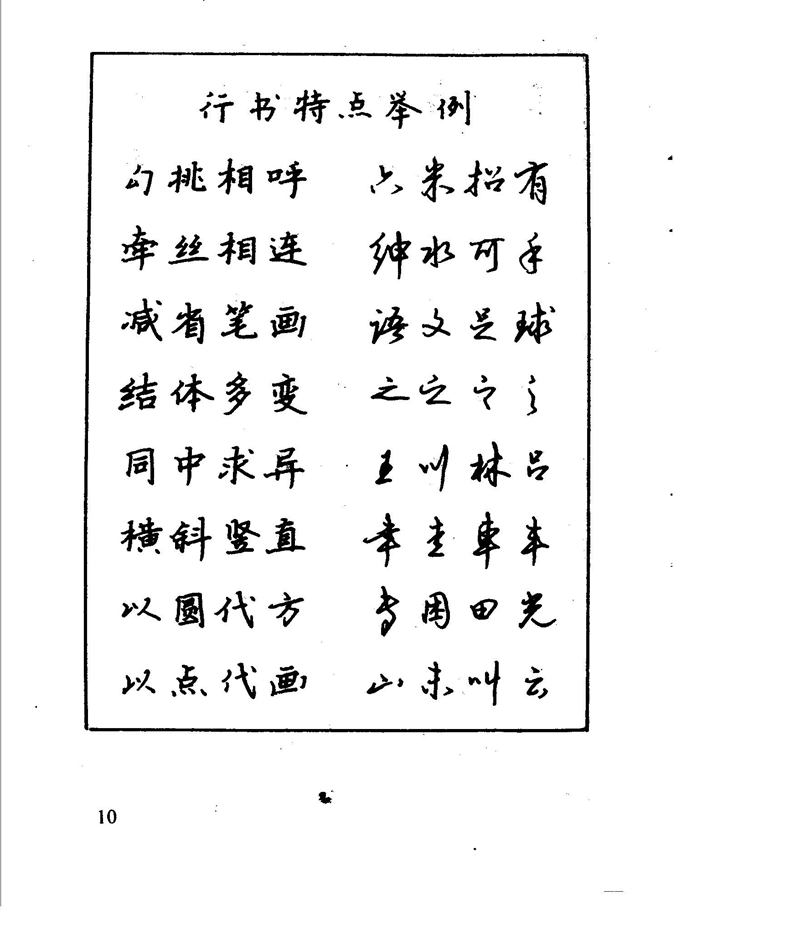 行书特点举例
勾挑相呼 六米招有
牵丝相连 绅水可手
减省笔画 语文足球
结体多变 之之之之
同中求异 王川林吕
横斜竖直 幸车
以圆代方 困田光
以点代画 山未叫云
10